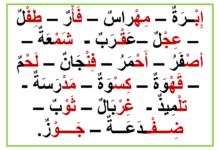 إِبْـرَةٌ – مِهْراسٌ – فَأْرٌ – طِفْلٌ
– عِجْلٌ – عَقْـرَبٌ - شَمْعَةٌ –
أَصْفَرُ – أَحْمَرُ – فِنْجَانٌ – لَحْمٌ
– قَهْوَةٌ – كِسْوَةٌ – مَدْرَسَةٌ -
تِلْمِيذٌ – غِرْبَالٌ – ثَوْبٌ –
ضِـفْـدَعَـــةٌ – جَـــوْزٌ.